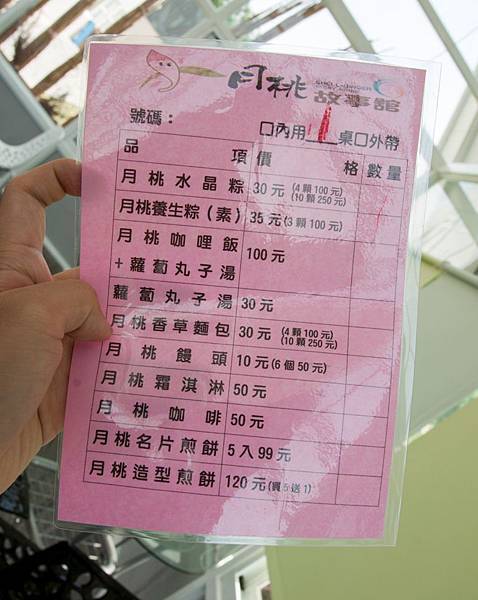 月桃
SHELL-GINGER
故事館
號碼：
口內用1桌口外帶
品項 價格 數量
月桃水晶粽 30元 (4顆100元) (10顆250元)
月桃養生粽(素) 35元(3顆100元)
月桃咖哩飯
+蘿蔔丸子湯 100元
蘿蔔丸子湯 30元
月桃香草麵包 30元 (4顆100元) (10顆250元)
月桃饅頭 10元(6個50元)
月桃霜淇淋 50元
月桃咖啡 50元
月桃名片煎餅 5入99元
月桃造型煎餅 120元(買5送1)